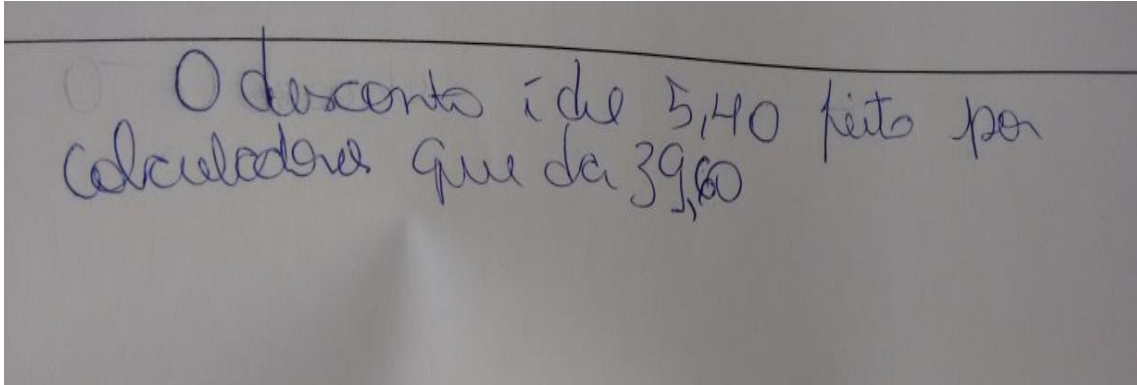 O desconto é de 5,40 feito por
calculadora que da 39,60